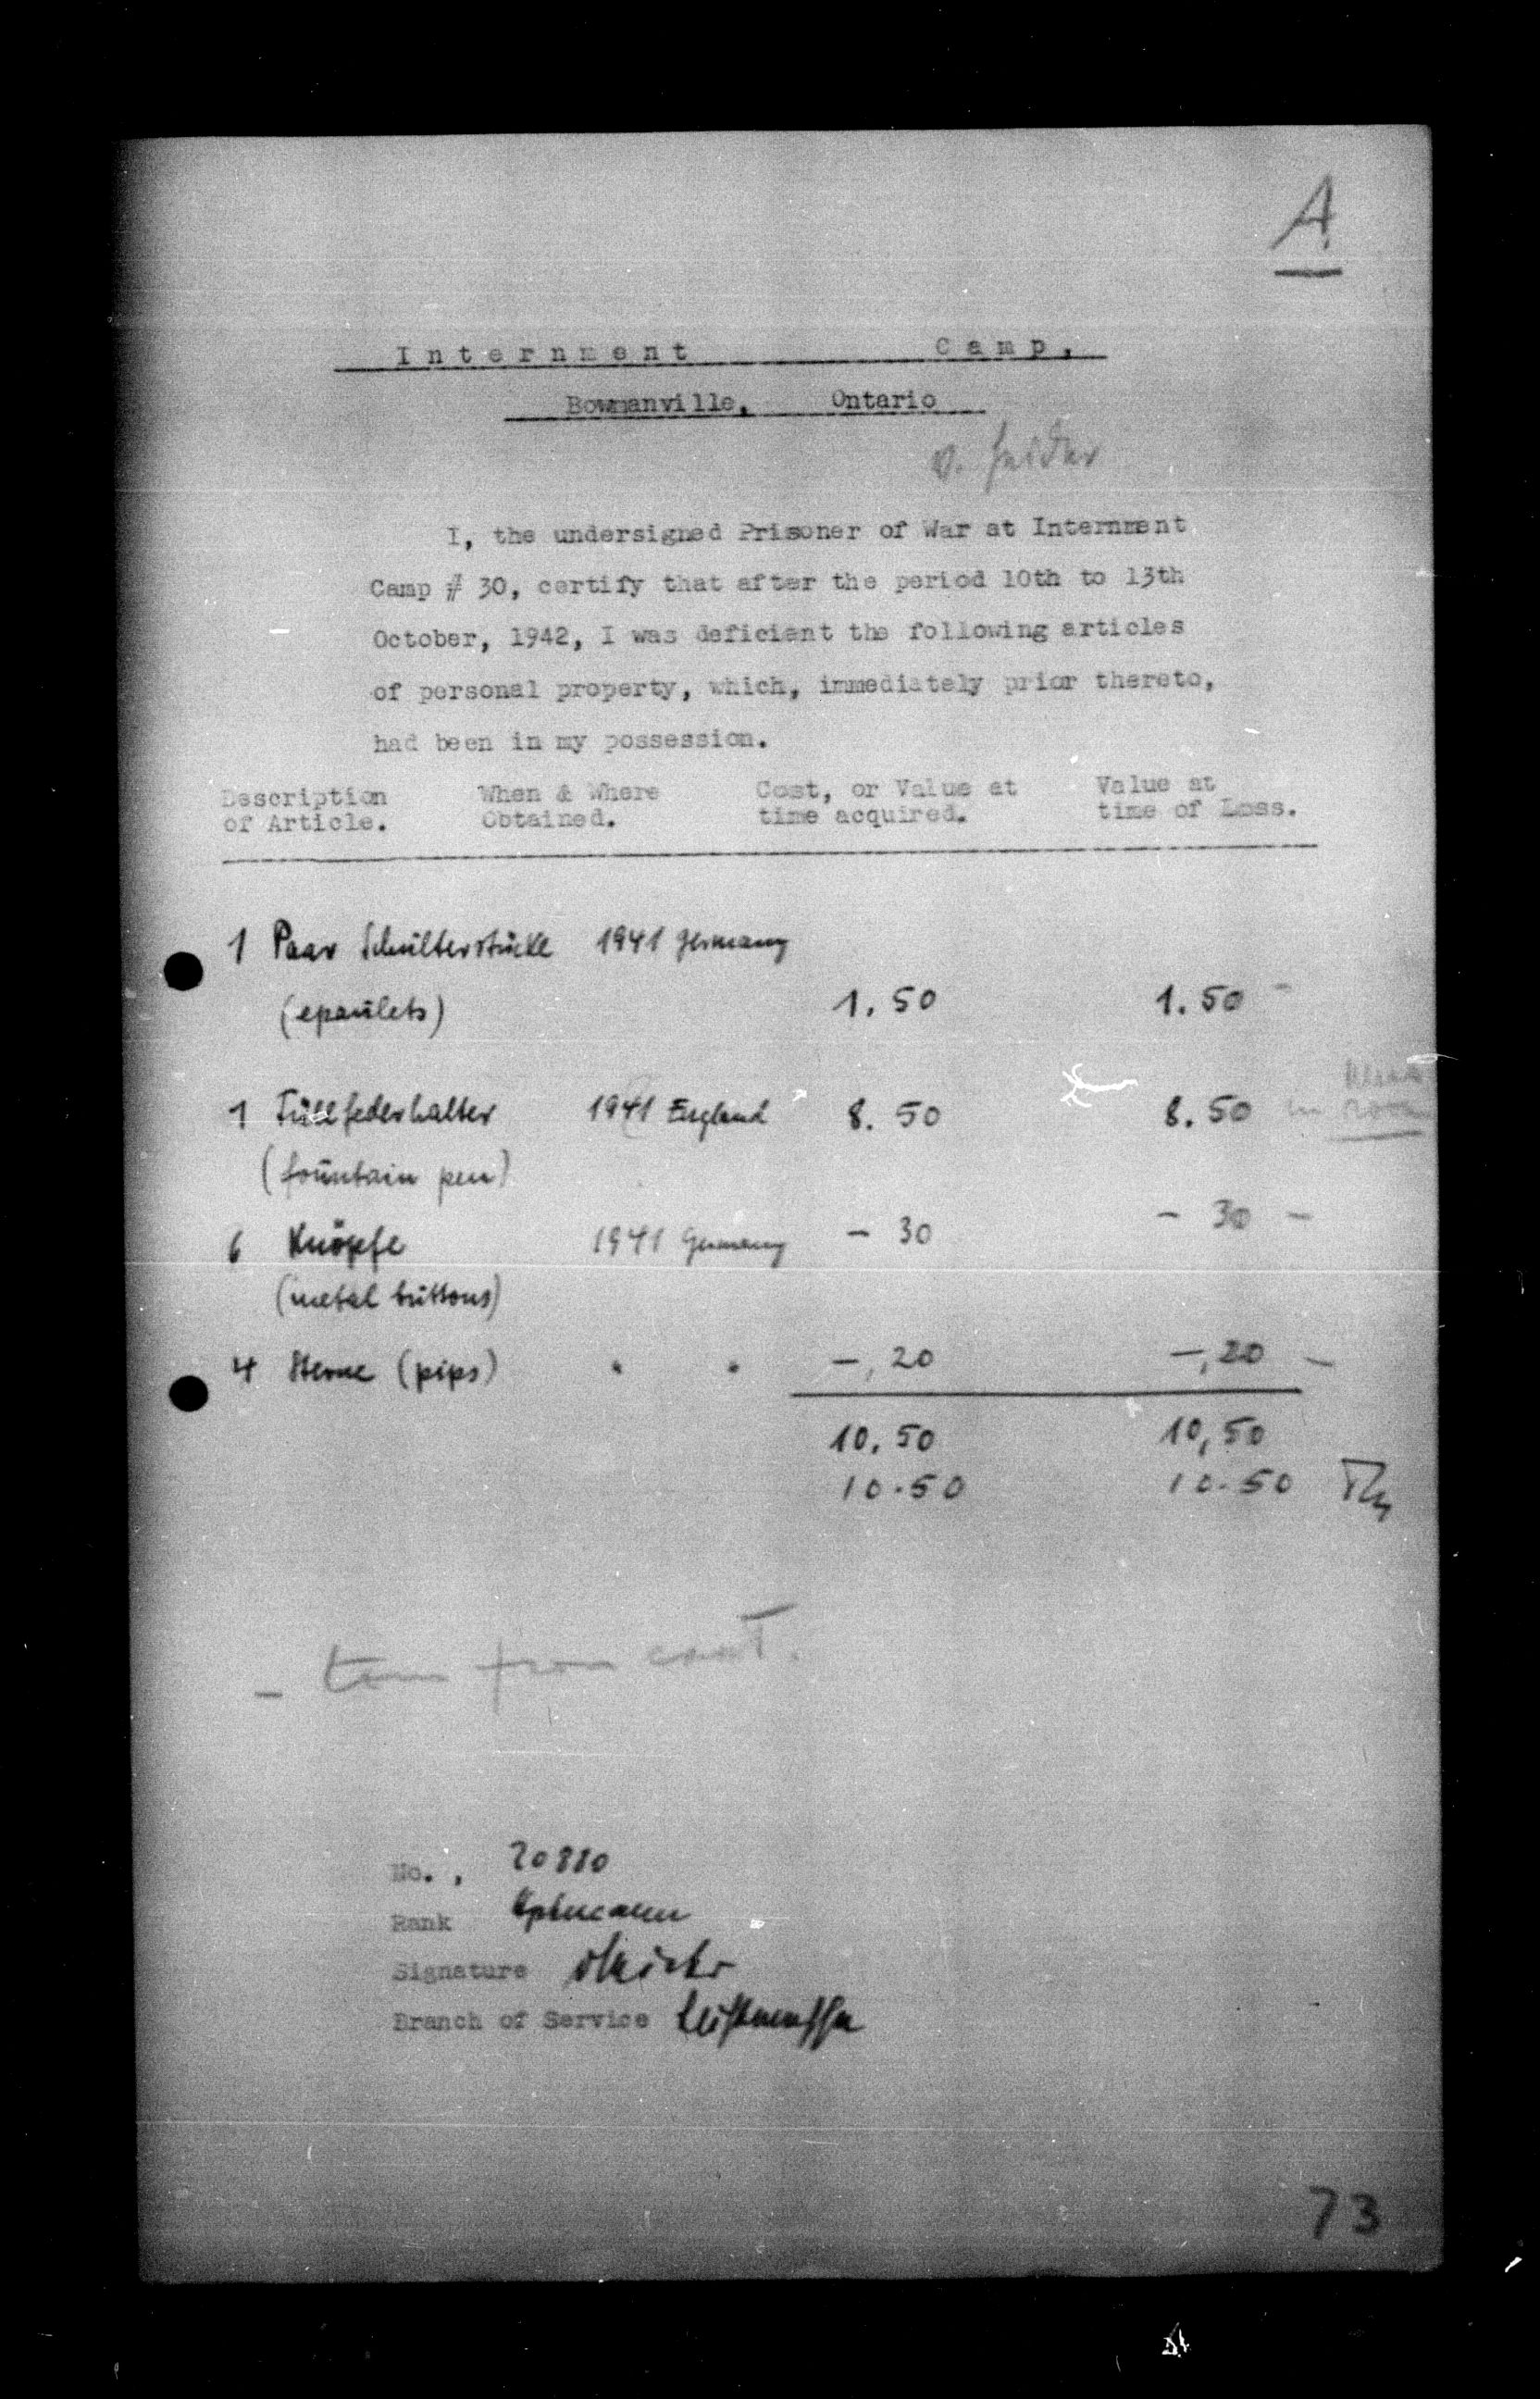 A
Internment Camp,
Bowmanville, Ontario
v.
I, the undersigned Prisoner of War at Internment
Camp # 30, certify that after the period 10th to 13th
October, 1942, I was deficient the following articles
of personal property, which, immediately prior thereto,
had been in my possession.
Description When & Where Cost, or Value at Value at
of Article. Obtained. time acquired. time of Loss.
1 Paar Schulterstücke 1941 Germany
(epaulets) 1.50 1.50 -
1 Füllfederhalter 1941 England 8.50 8.50 in room
(fountain pen)
6 Knöpfe 1941 Germany - 30 - 30 -
(metal buttons)
4 Sterne (pips) " " -,20 -,20 -
10.50 10,50
10.50 10.50
- torn from coat.
No., 20880
Rank Hptmann
Signature
Branch of Service Luftwaffe
73